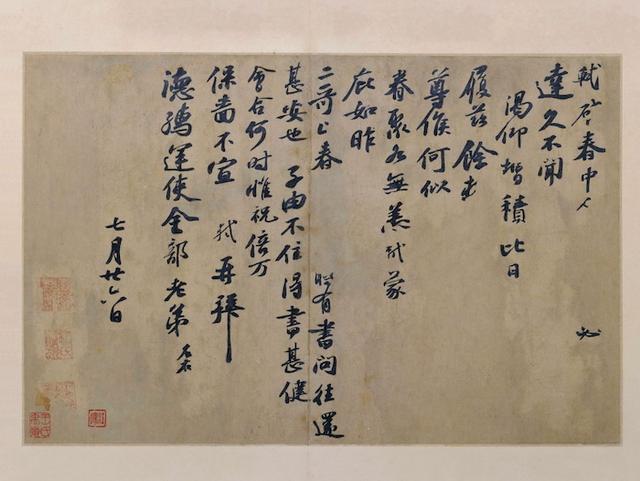 軾啓春中人必
達久不聞
渴仰增積比日
履茲餘
尊候何似
眷聚各無恙軾蒙
庇如昨
二哥上春時有書問往還
甚安也子由不住得書甚健
會合何時惟祝倍万
保嗇不宣軾再拜
德孺運使金部老弟左右
七月廿六日